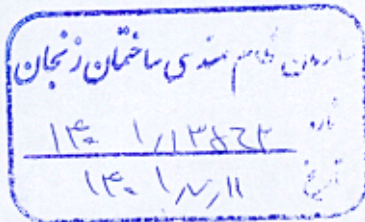 سازمان نظام مهندسی ساختمان زنجان
شماره
تاریخ ۱۴۰۱/۷/۱۱